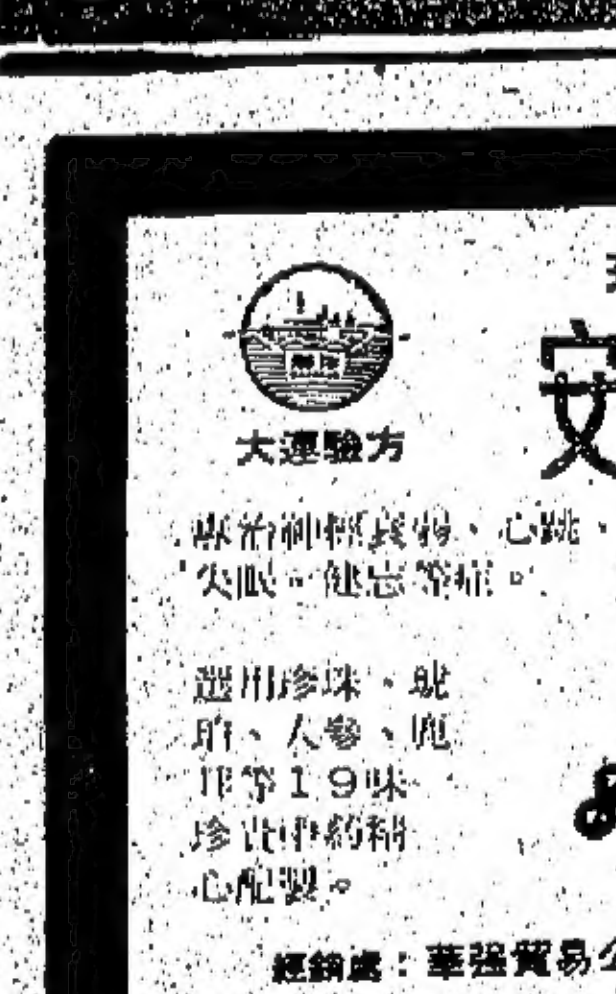 安
驗方
專治神經衰弱、心跳、
失眠、健忘等症。
選用珍珠、
、人參、鹿
茸等19味
珍貴中葯精
心配製。
經銷處：華强貿易公